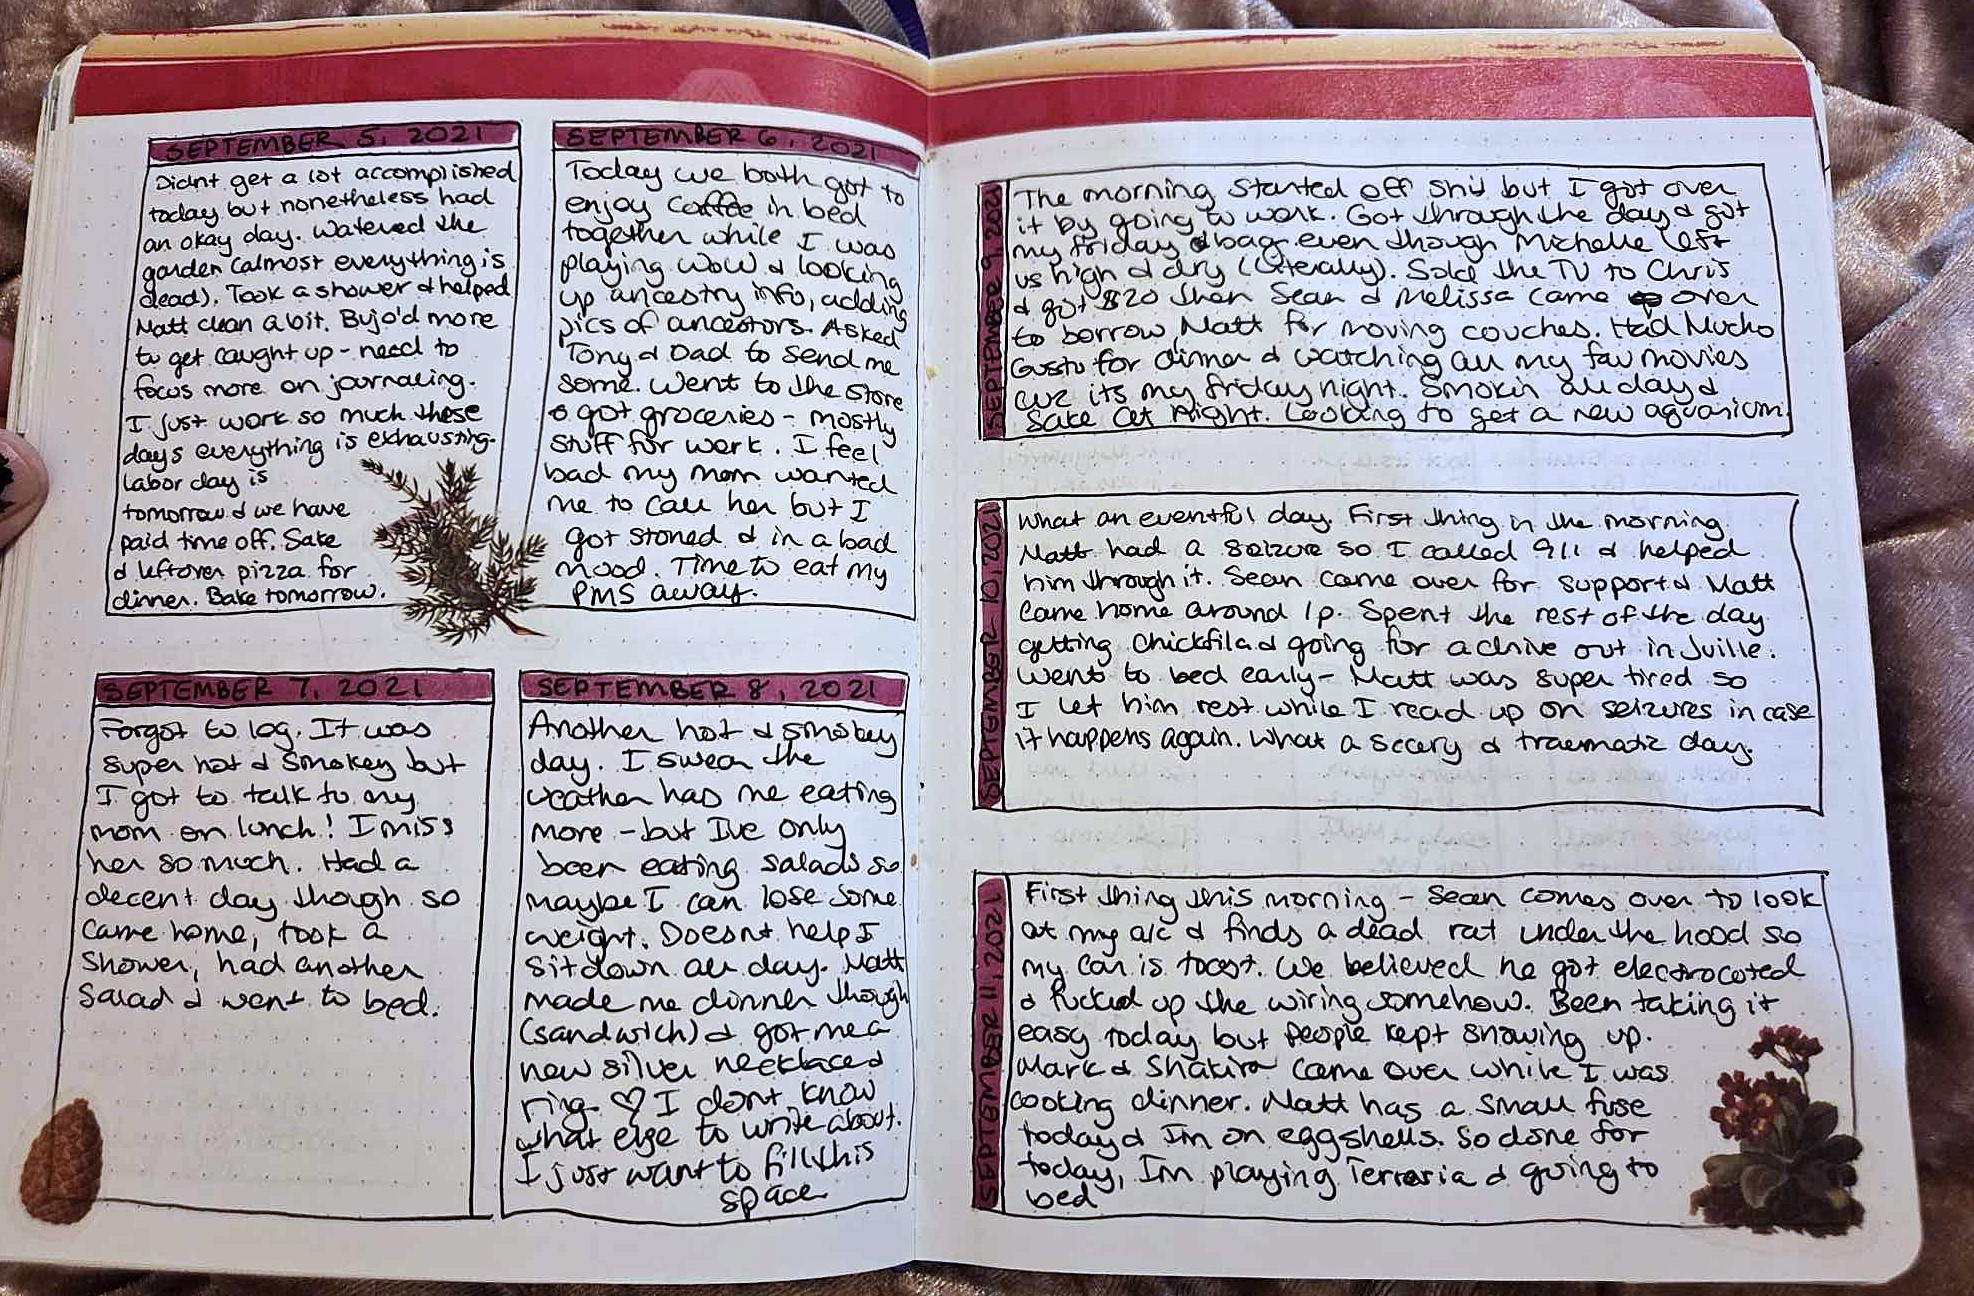 SEPTEMBER 5, 2021
Didnt get a lot accomplished
today but nonetheless had
an okay day. Watered the
garden (almost everything is
dead). Took a shower & helped
Matt clean a bit. Bujo'd more
to get caught up - need to
focus more on journaling.
I just work so much these
days everything is exhausting.
Labor day is
tomorrow & we have
paid time off. Sake
& leftover pizza for
dinner. Bake tomorrow.
SEPTEMBER 6, 2021
Today we both got to
enjoy coffee in bed
together while I was
playing WoW & looking
up ancestry info, adding
pics of ancestors. Asked
Tony & Dad to send me
some. Went to the store
& got groceries - mostly
stuff for work. I feel
bad my mom wanted
me to call her but I
got stoned & in a bad
mood. Time to eat my
PMS away.
SEPTEMBER 7, 2021
Forgot to log. It was
super hot & smokey but
I got to talk to my
mom on lunch! I miss
her so much. Had a
decent day though so
came home, took a
shower, had another
salad & went to bed.
SEPTEMBER 8, 2021
Another hot & smokey
day. I swear the
weather has me eating
more - but Ive only
been eating salads so
maybe I can lose some
weight. Doesnt help I
sit down all day. Matt
made me dinner though
(sandwich) & got me a
new silver necklace &
ring ♡ I dont know
what else to write about.
I just want to fill this
space
SEPTEMBER 9, 2021
The morning started off shit but I got over
it by going to work. Got through the day & got
my friday dbag even though Michelle left
us high & dry (literally). Sold the TV to Chris
& got $20 then Sean & Melissa came over
to borrow Matt for moving couches. Had Mucho
Gusto for dinner & watching all my fav movies
cuz its my friday night. Smokin all day &
Sake at Night. Looking to get a new aquarium
SEPTEMBER 10, 2021
What an eventful day. First thing in the morning
Matt had a seizure so I called 911 & helped
him through it. Sean came over for support & Matt
came home around 1p. Spent the rest of the day
getting Chickfila & going for a drive out in Jville.
Went to bed early - Matt was super tired so
I let him rest while I read up on seizures in case
it happens again. What a scary & traematic day.
SEPTEMBER 11, 2021
First thing this morning - Sean comes over to look
at my a/c & finds a dead rat under the hood so
my car is toast. We believed he got electrocoted
& fucked up the wiring somehow. Been taking it
easy today but people kept showing up.
Mark & Shakira came over while I was
cooking dinner. Matt has a small fuse
today & Im on eggshells. So done for
today, Im playing Terraria & going to
bed